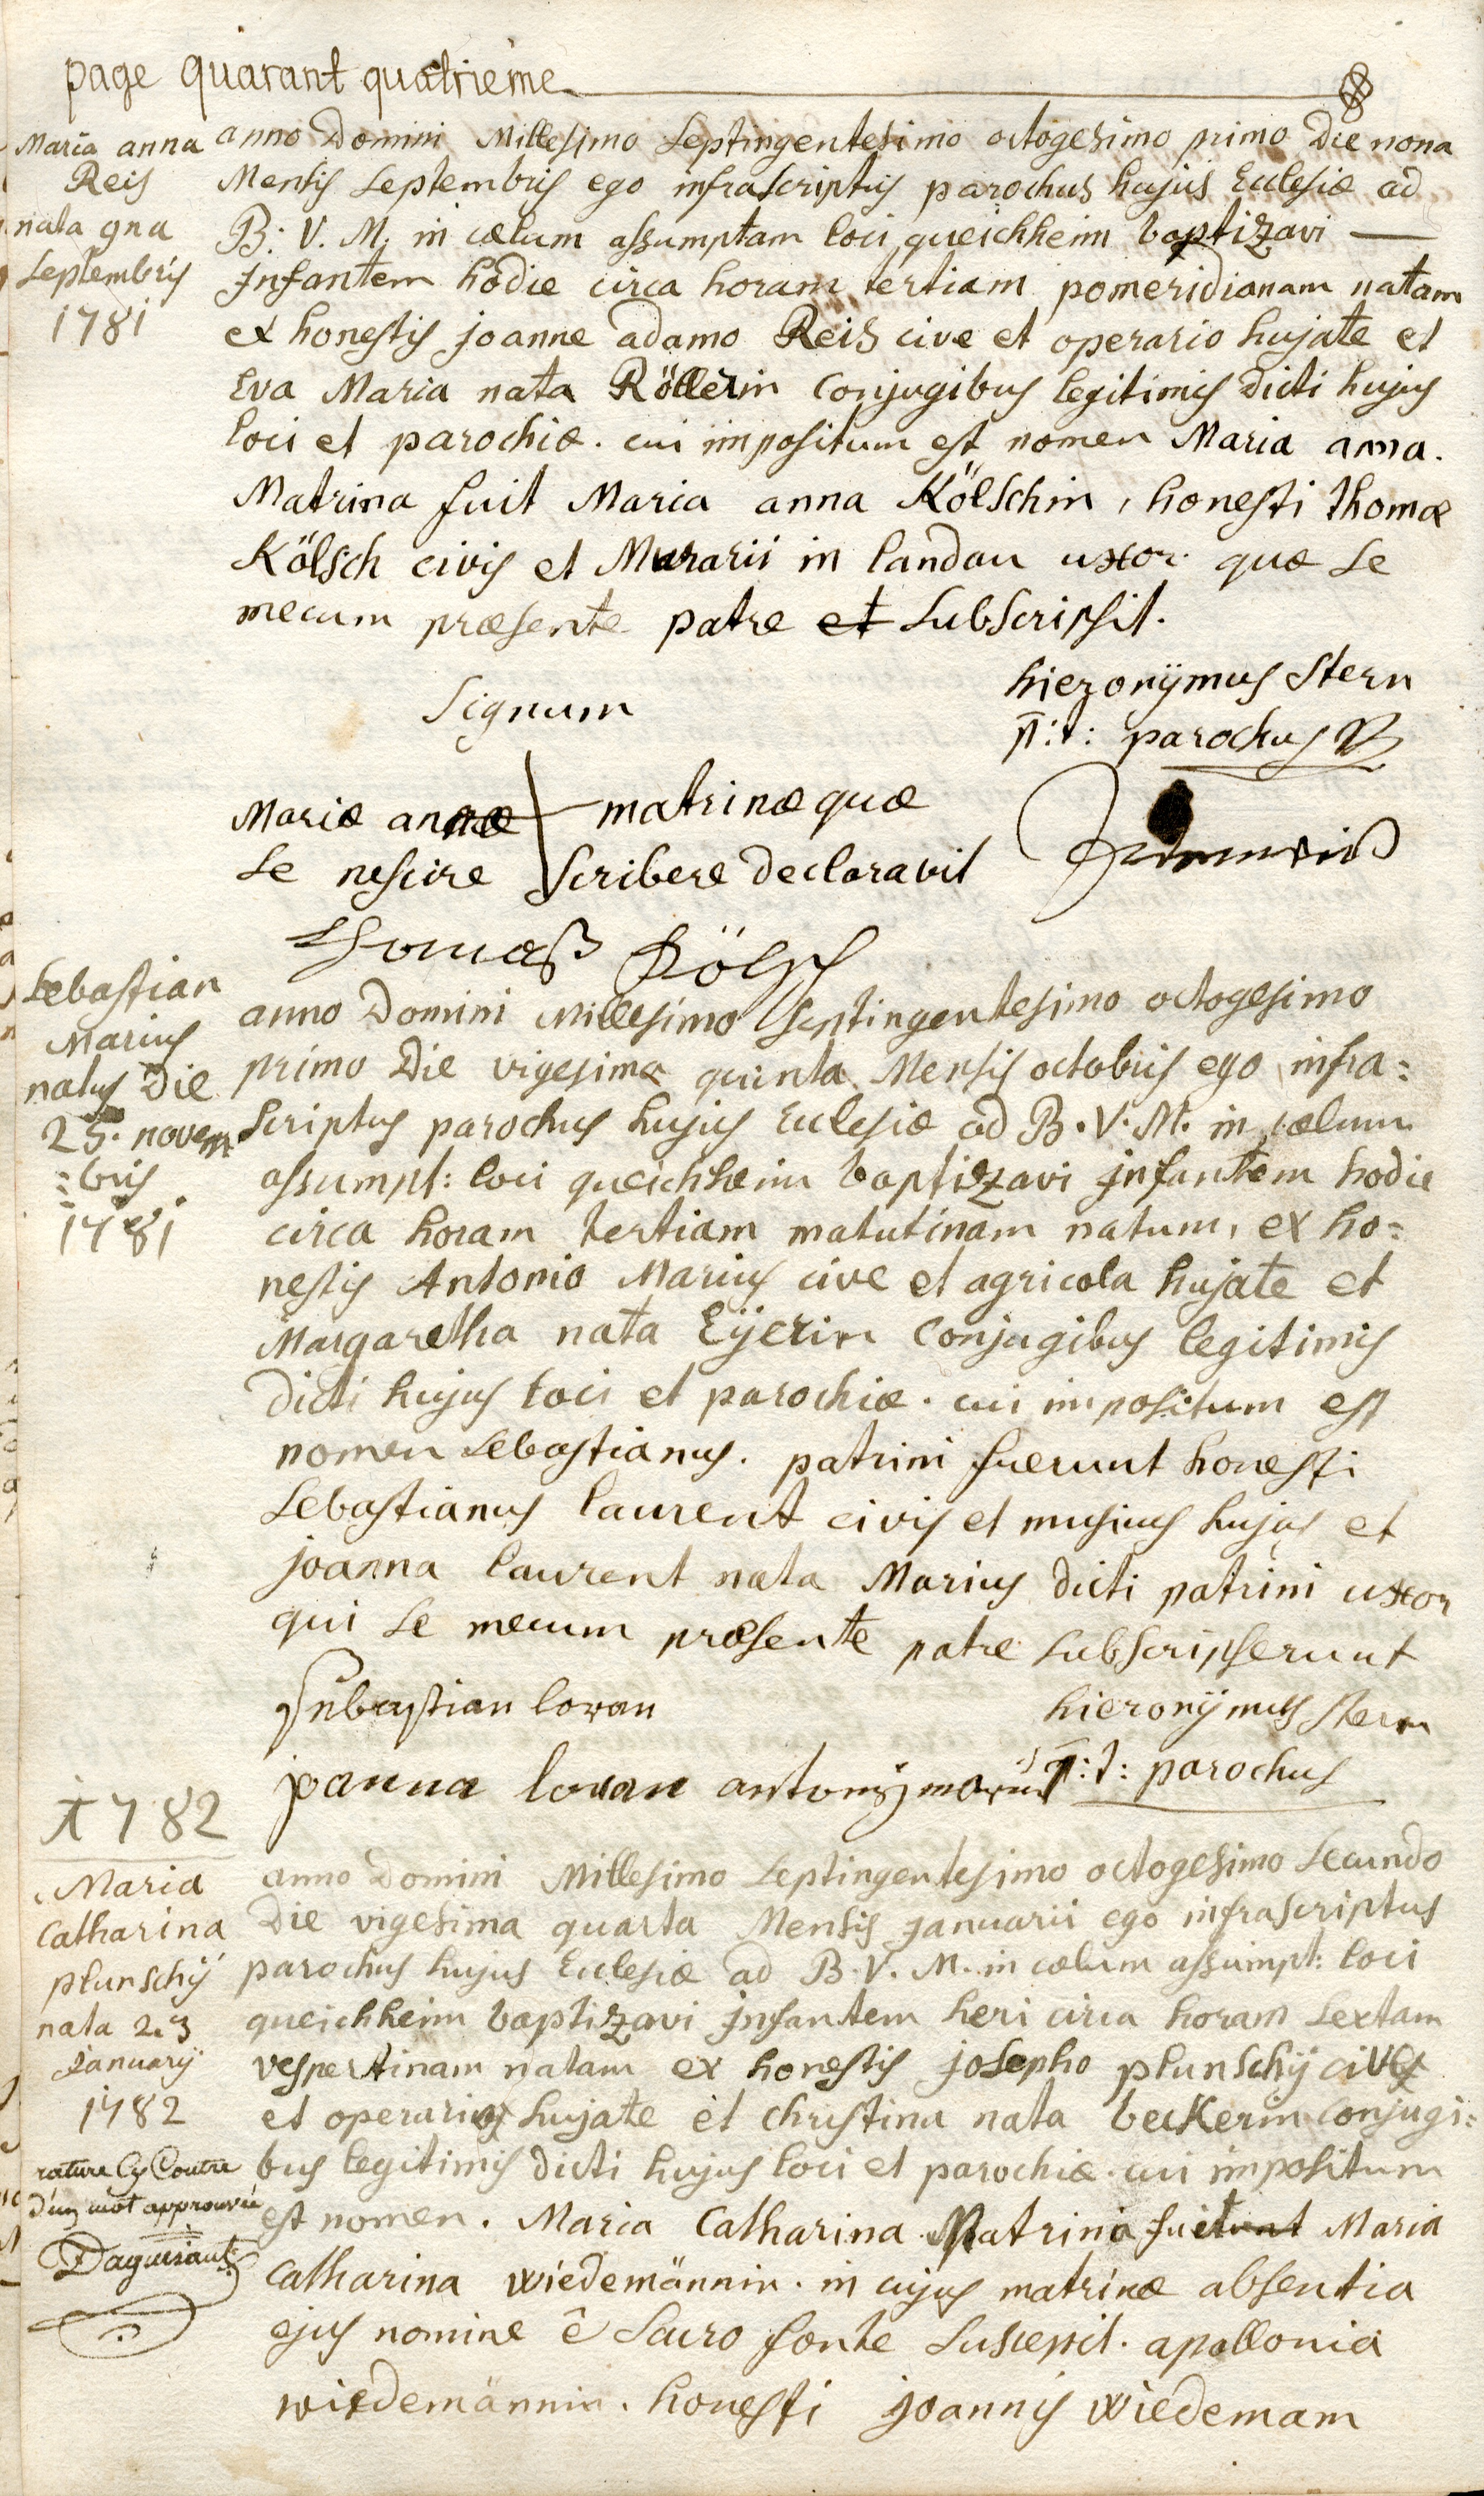 page quarant quatrieme
Maria anna
Reis
nata 9na
Septembris
1781
anno Domini Millesimo Septingentesimo octogesimo primo Die nona
Mensis Septembris ego infrascriptus parochus hujus Eclesiæ ad
B: V. M. in cœlum assumptam loci queichheim baptizavi —
Infantem hodie circa horam tertiam pomeridianam natam
ex honestis joanne adamo Reis cive et operario hujate et
Eva Maria nata Röllerin Conjugibus legitimis dicti hujus
loci et parochiæ. cui impositum est nomen Maria anna.
Matrina fuit Maria anna Kölschin, honesti thomæ
Kölsch civis et Murarii in landau uxor quæ se
mecum præsente patre et subscripsit.
hieronÿmus Stern
p:t: parochus
Signum
Mariæ annæ matrinæ quæ
se nescire scribere declaravit
Thomaß Kölsch
Sebastian
Marius
natus Die
25. novem
=bris
1781
anno Domini Millesimo Septingentesimo octogesimo
primo Die vigesima quinta Mensis octobris ego infra=
scriptus parochus hujus Eclesiæ ad B. V. M. in cœlum
assumpt: loci queichheim baptizavi infantem hodie
circa horam tertiam matutinam natum, ex ho=
nestis Antonio Marius cive et agricola hujate et
Margaretha nata Eÿerin Conjugibus legitimis
dicti hujus loci et parochiæ. cui impositum est
nomen Sebastianus. patrini fuerunt honesti
Sebastianus laurent civis et musicus hujas et
joanna laurent nata Marius dicti patrini uxor
qui se mecum præsente patre subscripserunt
Sebastian loran
hieronÿmus Stern
joanna loran antonÿ marius
p:t: parochus
1782
Maria
Catharina
plunschÿ
nata 23
Januarÿ
1782
anno Domini Millesimo Septingentesimo octogesimo Secundo
Die vigesima quarta Mensis januarii ego infrascriptus
parochus hujus Eclesiæ ad B. V. M. in cœlum assumpt: loci
queichheim baptizavi infantem heri circa horam sextam
vespertinam natam ex honestis josepho plunschÿ cive
et operario hujate et christina nata beckerin Conjugi=
bus legitimis dicti hujus loci et parochiæ. cui impositum
est nomen. Maria Catharina Matrina fuit Maria
Catharina wiedemännin. in cujus matrinæ absentia
ejus nomine ê Sacro fonte suscepit. apollonia
wiedemännin. honesti joannis wiedemam
rature Cy Contre
d'un mot approuvée